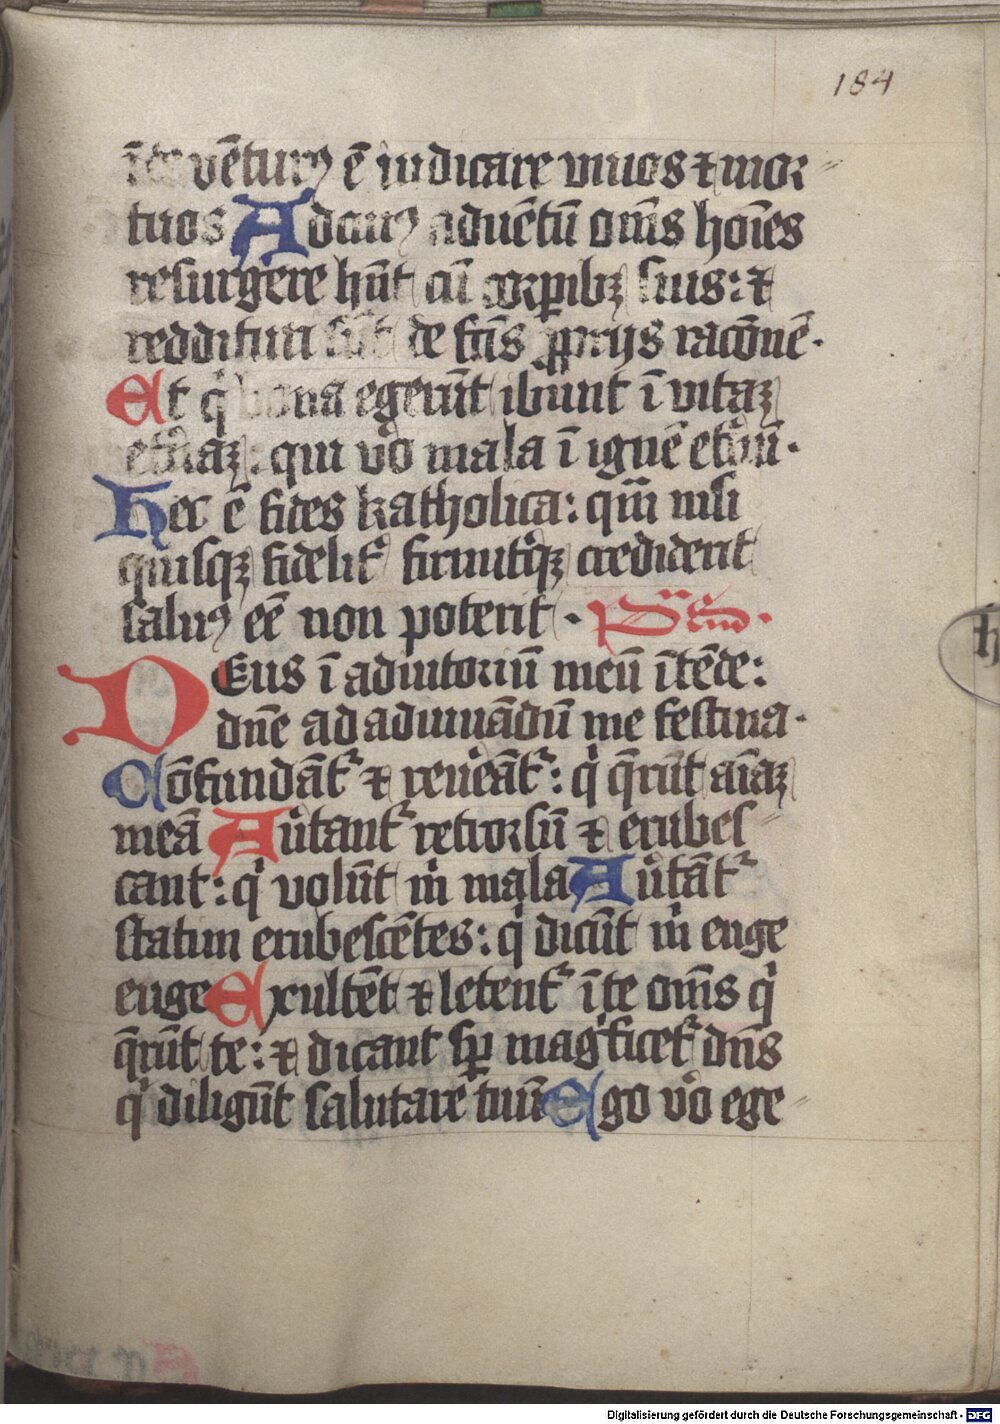 184
īde vēturꝰ ē iudicare viuos ⁊ mor
tuos Ad cuiꝰ aduētū om̄s hoīes
resurgere hn̄t cū corpibꝫ suis: ⁊
reddituri sūt de fc̄is ꝓprijs racōnē.
Et qͥ bona egerūt ibunt ī vitaꝫ
et̓naꝫ: qui v̓o mala ī ignē et̓nū.
Hec ē fides katholica: qm̄ nisi
quisqꝫ fidelit̓ firmit̓qꝫ crediderit
saluꝰ eē non poterit.
DEus ī adiutoriū meū ītēde:
dn̄e ad adiuuādū me festina.
Cōfundāt̓ ⁊ reueāt̓: qͥ q̄rūt aīaꝫ
meā Au̓tant̓ retrorsū ⁊ erubes
cant: qͥ volūt mͥ mala Au̓tāt̓
statim erubescētes: qͥ dicūt mͥ euge
euge Exultēt ⁊ letent̓ ī te om̄s qͥ
q̄rūt te: ⁊ dicant sp̄ magͥficet̓ dn̄s
qͥ diligūt salutare tuū Ego v̓o ege
Digitalisierung gefördert durch die Deutsche Forschungsgemeinschaft - DFG